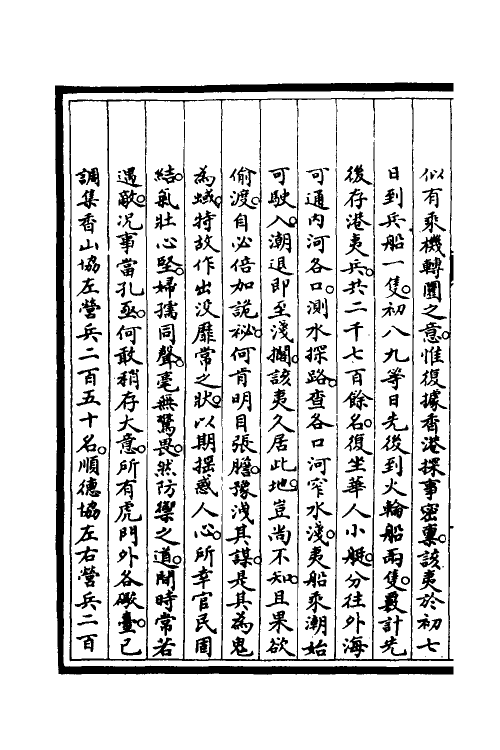 似有乘機轉圜之意惟復據香港探事密稟該夷於初七
日到兵船一隻初八九等日先後到火輪船兩隻覈計先
後存港夷兵共二千七百餘名復坐華人小艇分往外海
可通内河各口測水探路查各口河窄水淺夷船乘潮始
可駛入潮退即至淺擱該夷久居此地豈尚不知且果欲
偷渡自必倍加詭祕何肯明目張膽豫洩其謀是其為鬼
為蜮特故作出没靡常之狀以期揺惑人心所幸官民固
結氣壯心堅婦孺同聲毫無驚畏然防禦之道閒時常若
遇敵況事當孔亟何敢稍存大意所有虎門外各礮臺已
調集香山協左營兵二百五十名順德協左右營兵二百